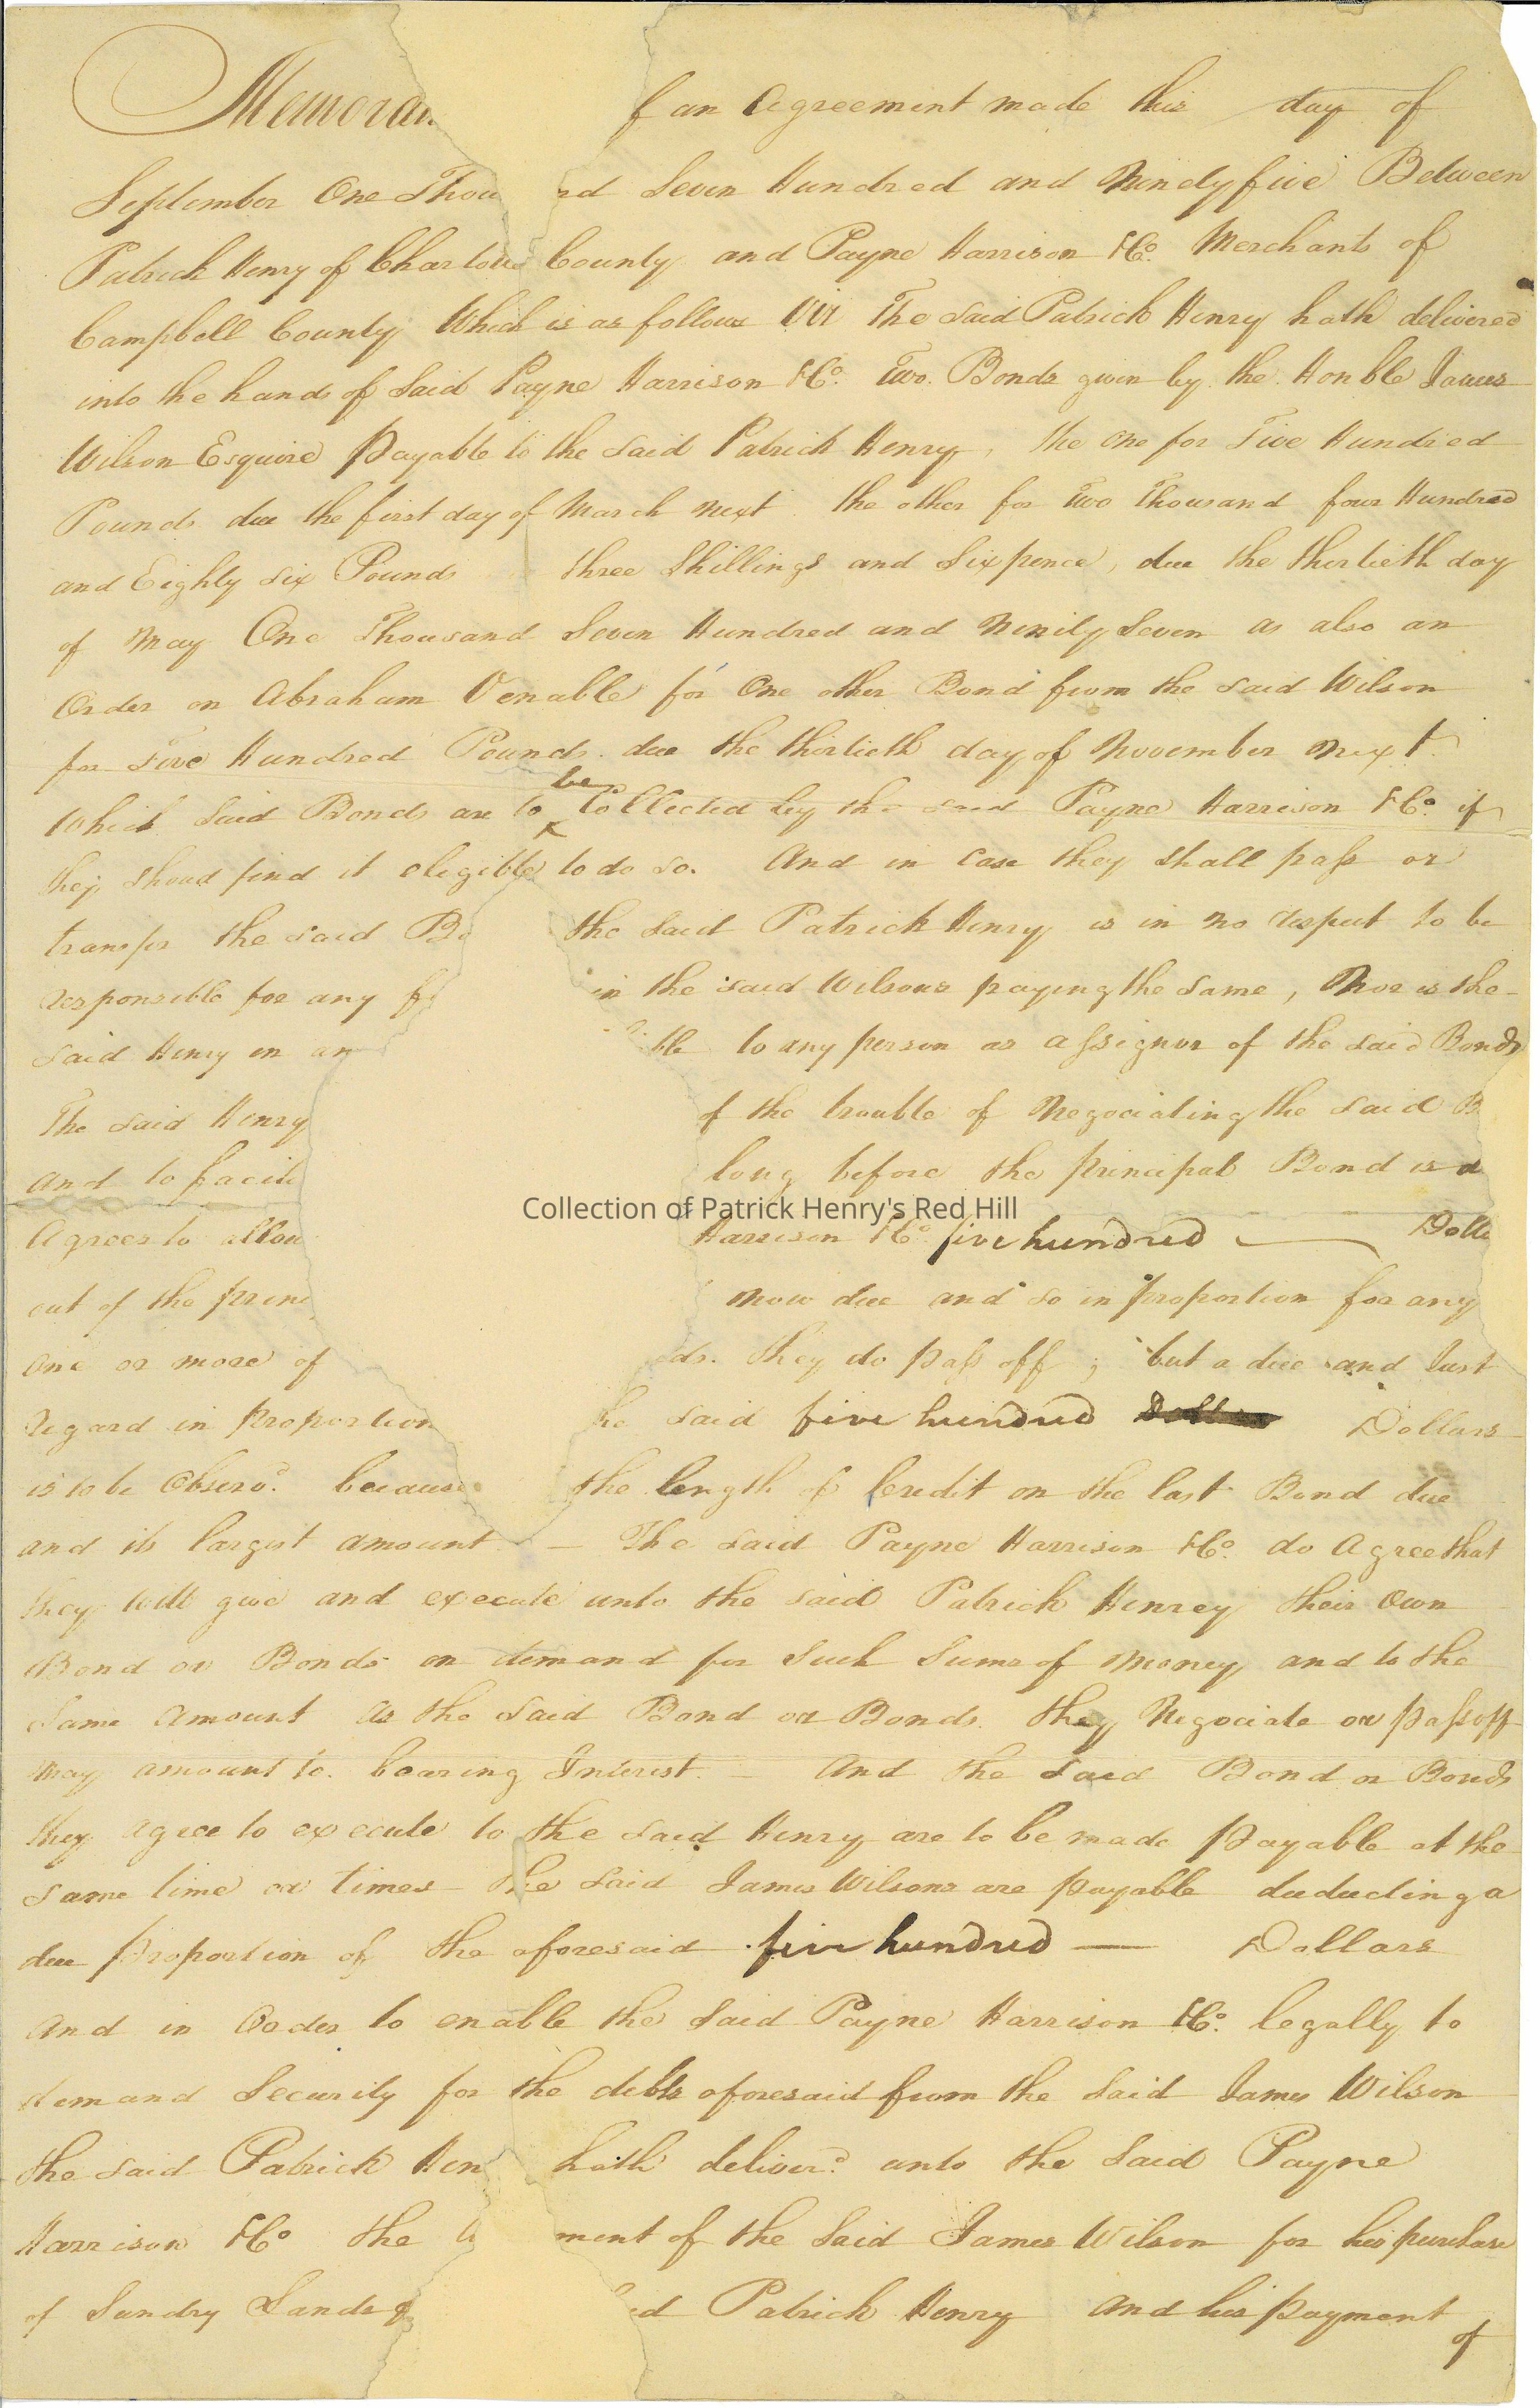 Memoran f an Agreement made this day of
September One Thou nd Seven Hundred and Ninety five Between
Patrick Henry of Charlotte County and Payne Harrison & Co. Merchants of
Campbell County Which is as follows Viz The said Patrick Henry hath delivered
into the hands of Said Payne Harrison & Co. Two Bonds given by the Honble James
Wilson Esquire Payable to the said Patrick Henry, the one for Five Hundred
Pounds due the first day of March next the other for Two Thousand four Hundred
and Eighty six Pounds three Shillings and Six pence, due the thirtieth day
of May One Thousand Seven Hundred and Ninety Seven as also an
Order on Abraham Venable for One other Bond from the said Wilson
for Five Hundred Pounds due the thirtieth day of November Next
which Said Bonds are to be Collected by the said Payne Harrison & Co. if
they shoud find it eligible to do so. And in Case they shall pass or
transfer the said Bo the said Patrick Henry is in no respect to be
responsible for any in the said Wilsons paying the same, Nor is the
Said Henry in an ble to any person as assignor of the said Bonds
The said Henry f the trouble of Negociating the said B
And to facili long before the principal Bond is d
Agrees to allow Harrison & Co. five hundred Dolla
out of the prin now due and so in proportion for any
One or more of ds. they do pass off; but a due and Just
regard in proportion he said five hundred Dollars
is to be Observd. because the length of Credit on the last Bond due
and its largest amount — The said Payne Harrison & Co. do Agree that
they will give and execute unto the said Patrick Henrey their Own
Bond or Bonds on demand for Such Sums of Money and to the
Same Amount As the said Bond or Bonds they Negociate or pass off
may amount to. bearing Interest. — And the said Bond or Bonds
they agree to execute to the said Henry are to be made payable at the
same time or times the said James Wilsons are payable deducting a
due proportion of the aforesaid five hundred — Dollars
And in Order to enable the Said Payne Harrison & Co. legally to
demand Security for the debts aforesaid from the said James Wilson
the said Patrick Hen hath deliverd. unto the Said Payne
Harrison & Co the ment of the Said James Wilson for his purchase
of Sundry Lands of ed Patrick Henry And his payment
of
Collection of Patrick Henry's Red Hill